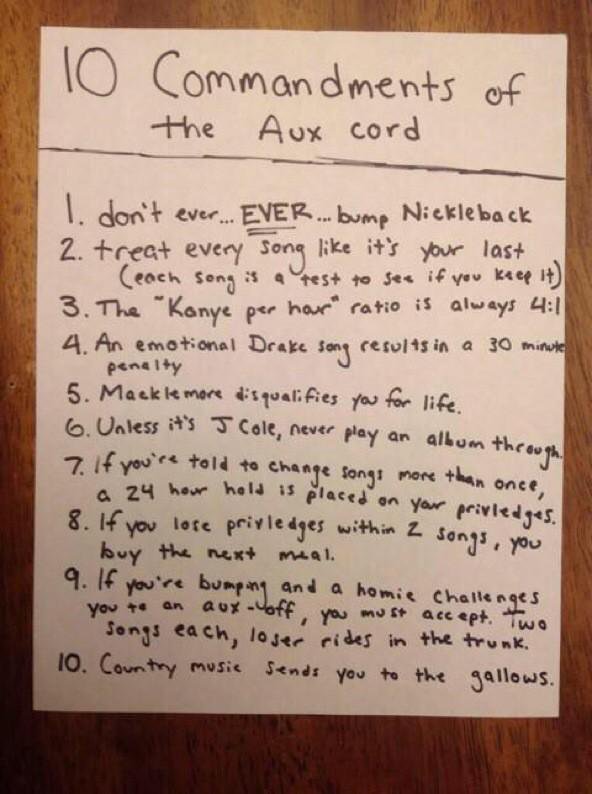 10 Commandments of
the Aux cord
1. don't ever... EVER... bump Nickleback
2. treat every song like it's your last
(each song is a test to see if you keep it)
3. The "Kanye per hour" ratio is always 4:1
4. An emotional Drake song results in a 30 minute
penalty
5. Macklemore disqualifies you for life.
6. Unless it's J Cole, never play an album through.
7. If you're told to change songs more than once,
a 24 hour hold is placed on your privledges.
8. If you lose privledges within 2 songs, you
buy the next meal.
9. If you're bumping and a homie challenges
you to an aux-off, you must accept. Two
songs each, loser rides in the trunk.
10. Country music sends you to the gallows.